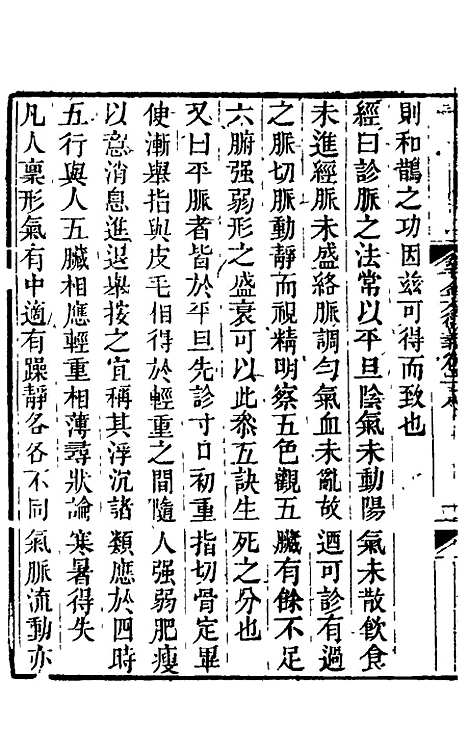 則和鵲之功因茲可得而致也
經曰診脈之法常以平旦陰氣未動陽氣未散飲食
未進經脈未盛絡脈調勻氣血未亂故迺可診有過
之脈切脈動靜而視精明察五色觀五臟有餘不足
六腑强弱形之盛衰可以此叅五訣生死之分也
又曰平脈者皆於平旦先診寸口初重指切骨定畢
使漸舉指與皮毛相得於輕重之間隨人强弱肥瘦
以意消息進退舉按之宜稱其浮沉諸類應於四時
五行與人五臟相應輕重相薄尋狀論寒暑得失
凡人稟形氣有中適有躁靜各各不同氣脈流動亦